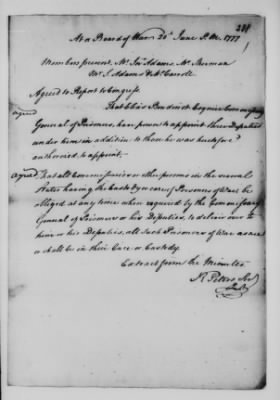 281
At a Board of War 20th June P.M. 1777
Members present, Mr. Jno. Adams, Mr. Sherman
Mr. S. Adams & Mr. Carroll
Agreed to Report to Congress
That Elias Boudinot Esquire Commissary
agreed General of Prisoners, have power to appoint three Deputies
under him in addition to those he was heretofore
authorized to appoint.
agreed That all Commissioners or other persons in the several
States having the Custody or care of Prisoners of War, be
obliged at any time when required by the Commissary
General of Prisoners or his Deputies, to deliver over to
him or his Deputies, all such Prisoners of War as are
or shall be in their Care or Custody.
Extract from the Minutes
Secy